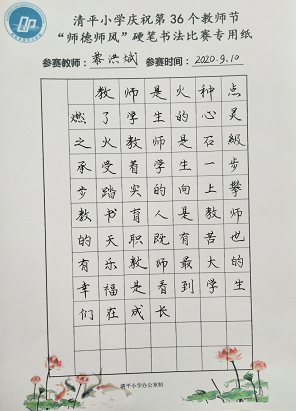 清平小学庆祝第36个教师节
“师德师风”硬笔书法比赛专用纸
参赛教师：蔡洪斌 参赛时间：2020.9.10
教师是火种点
燃了学生的心灵
之火教师是石級
承受着学生一步
步踏实的向上攀
教书育人是教师
的天职既有苦也
有乐教师最大的
幸福是看到学生
们在成长
清平小学办公室制